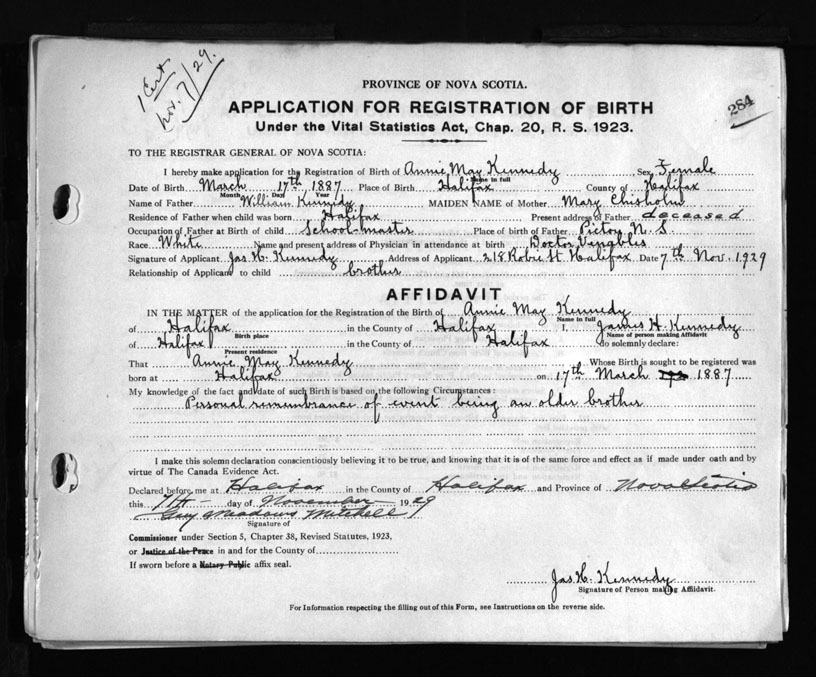 1 Cert
Nov. 7/29.
284
PROVINCE OF NOVA SCOTIA.
APPLICATION FOR REGISTRATION OF BIRTH
Under the Vital Statistics Act, Chap. 20, R. S. 1923.
TO THE REGISTRAR GENERAL OF NOVA SCOTIA:
I hereby make application for the Registration of Birth of Annie May Kennedy Sex Female
Name in full
Date of Birth March 17th 1887 Place of Birth Halifax County of Halifax
Month Day Year
Name of Father William Kennedy MAIDEN NAME of Mother Mary Chisholm
Residence of Father when child was born Halifax Present address of Father deceased
Occupation of Father at Birth of child School-master Place of birth of Father Pictou N. S.
Race White Name and present address of Physician in attendance at birth Doctor
Signature of Applicant Jas. H. Kennedy Address of Applicant 218 Robie St Halifax Date 7th Nov. 1929
Relationship of Applicant to child brother
AFFIDAVIT
IN THE MATTER of the application for the Registration of the Birth of Annie May Kennedy
Name in full
of Halifax in the County of Halifax I, James H. Kennedy
Birth place Name of person making Affidavit
of Halifax in the County of Halifax do solemnly declare:
Present residence
That Annie May Kennedy Whose Birth is sought to be registered was
born at Halifax on 17th March 1887
My knowledge of the fact and date of such Birth is based on the following Circumstances:
Personal remembrance of event being an older brother
I make this solemn declaration conscientiously believing it to be true, and knowing that it is of the same force and effect as if made under oath and by
virtue of The Canada Evidence Act.
Declared before me at Halifax in the County of Halifax and Province of Nova Scotia
this 7th day of November 1929
Guy Meadows Mitchell
Signature of
Commissioner under Section 5, Chapter 38, Revised Statutes, 1923,
or Justice of the Peace in and for the County of
If sworn before a Notary Public affix seal.
Jas. H. Kennedy
Signature of Person making Affidavit.
For Information respecting the filling out of this Form, see Instructions on the reverse side.